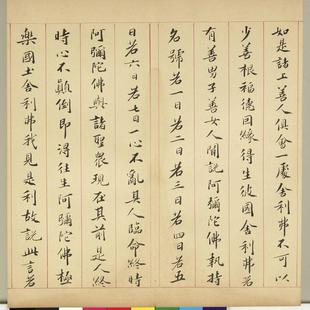 如是諸上善人俱會一處舍利弗不可以
少善根福德因緣得生彼國舍利弗若
有善男子善女人聞說阿彌陀佛執持
名號若一日若二日若三日若四日若五
日若六日若七日一心不亂其人臨命終時
阿彌陀佛與諸聖眾現在其前是人終
時心不顛倒即得往生阿彌陀佛極
樂國土舍利弗我見是利故說此言若